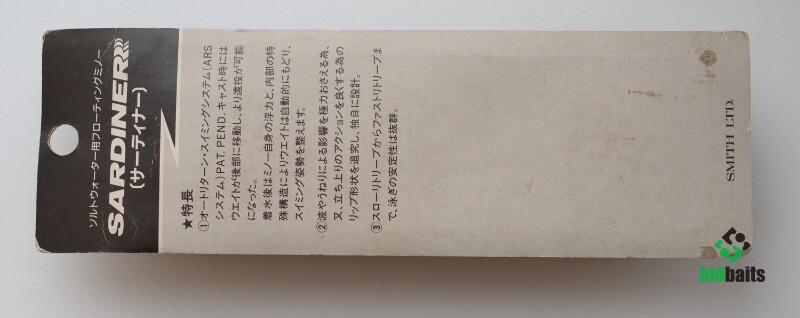 ソルトウォーター用フローティングミノー
SARDINER
(サーディナー)
★特長
①オートリターン・スイミングシステム(ARS
システム)PAT. PEND. キャスト時には
ウエイトが後部に移動し、より遠投が可能
になった。
着水後はミノー自身の浮力と、内部の特
殊構造によりウエイトは自動的にもどり、
スイミング姿勢を整えます。
②波やうねりによる影響を極力おさえる為、
又、立ち上りのアクションを良くする為の
リップ形状を追究し、独自に設計。
③スローリトリーブからファストリトリーブま
で、泳ぎの安定性は抜群。
SMITH LTD.
bidbaits